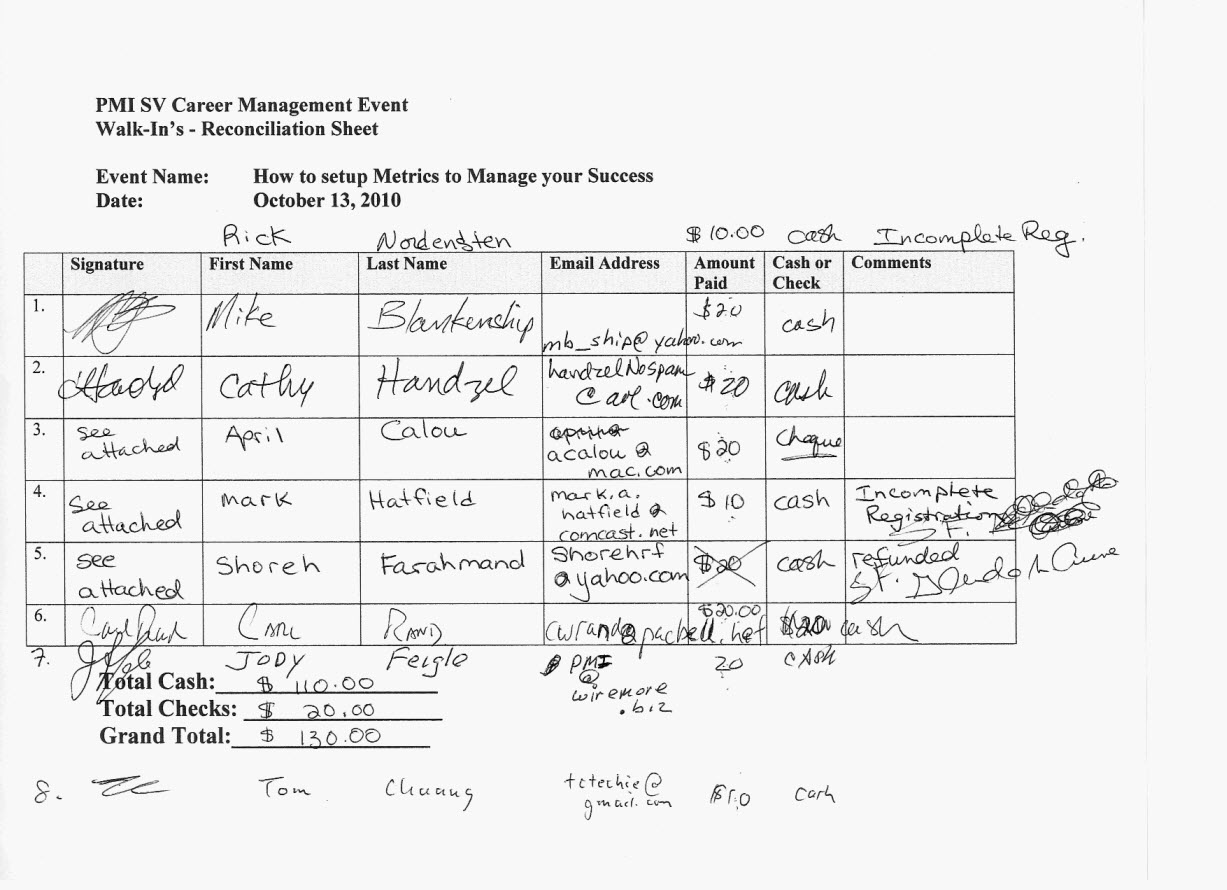 PMI SV Career Management Event
Walk-In's - Reconciliation Sheet
Event Name: How to setup Metrics to Manage your Success
Date: October 13, 2010
Rick Nordensten $10.00 cash Incomplete Reg.
Signature First Name Last Name Email Address Amount Paid Cash or Check Comments
1. Mike Blankenship mb_ship@yahoo.com $20 cash
2. Cathy Handzel handzelNospam@aol.com $20 cash
3. see attached April Calou acalou@mac.com $20 Cheque
4. See attached Mark Hatfield mark.a.hatfield@comcast.net $10 cash Incomplete Registration
5. see attached Shoreh Farahmand Shorehrf@yahoo.com $20 cash refunded
6. Carl Rand cwrand@pacbell.net $20.00 $20 cash
7. Jody Feigle PMI@wiremore.biz 20 cash
Total Cash: $ 110.00
Total Checks: $ 20.00
Grand Total: $ 130.00
8. Tom Chuang tctechie@gmail.com $10 cash